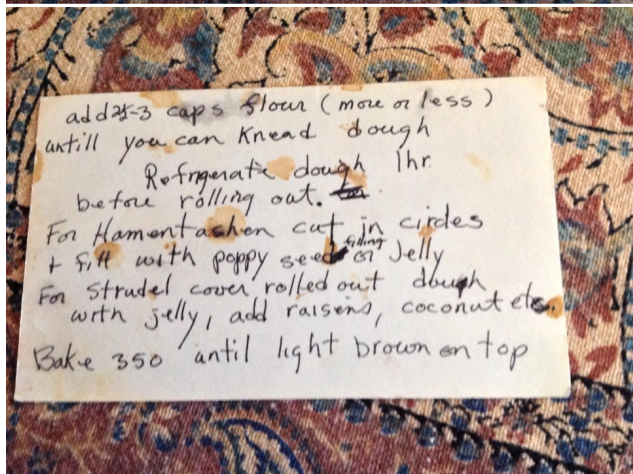 add 2½-3 cups flour (more or less)
untill you can Knead dough
Refrigerate dough 1hr.
before rolling out.
For Hamentashen cut in circles
+ fill with poppy seed filling or Jelly
For Strudel cover rolled out dough
with jelly, add raisens, coconut etc.
Bake 350 until light brown on top